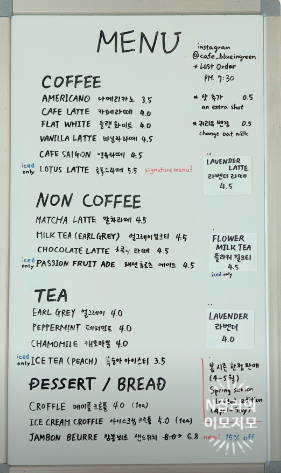 MENU
instagram
@cafe_blueingreen
* Last Order
PM. 7:30
COFFEE
AMERICANO 아메리카노 3.5
CAFE LATTE 카페라떼 4.0
FLAT WHITE 플랫화이트 4.0
VANILLA LATTE 바닐라라떼 4.5
CAFE SAIGON 연유라떼 4.5
iced only LOTUS LATTE 로투스 5.5 signature menu!
* 샷 추가 0.5
an extra shot
* 귀리유 변경 0.5
change oat milk
LAVENDER
LATTE
라벤더 라떼
4.5
NON COFFEE
MATCHA LATTE 말차라떼 4.5
MILK TEA (EARL GREY) 얼그레이밀크티 4.5
CHOCOLATE LATTE 초코라떼 4.5
iced only PASSION FRUIT ADE 패션후르츠 에이드 4.5
FLOWER
MILK TEA
플라워 밀크티
4.5
iced only
TEA
EARL GREY 얼그레이 4.0
PEPPERMINT 페퍼민트 4.0
CHAMOMILE 캐모마일 4.0
iced only ICE TEA (PEACH) 복숭아 아이스티 3.5
LAVENDER
라벤더
4.0
DESSERT / BREAD
CROFFLE 메이플크로플 4.0 (1ea)
ICE CREAM CROFFLE 아이스크림 크로플 4.0 (1ea)
JAMBON BEURRE 잠봉뵈르 샌드위치 8.0 → 6.8 15% off
봄 시즌 한정 판매
(4-5월)
Spring
edition
이모저모